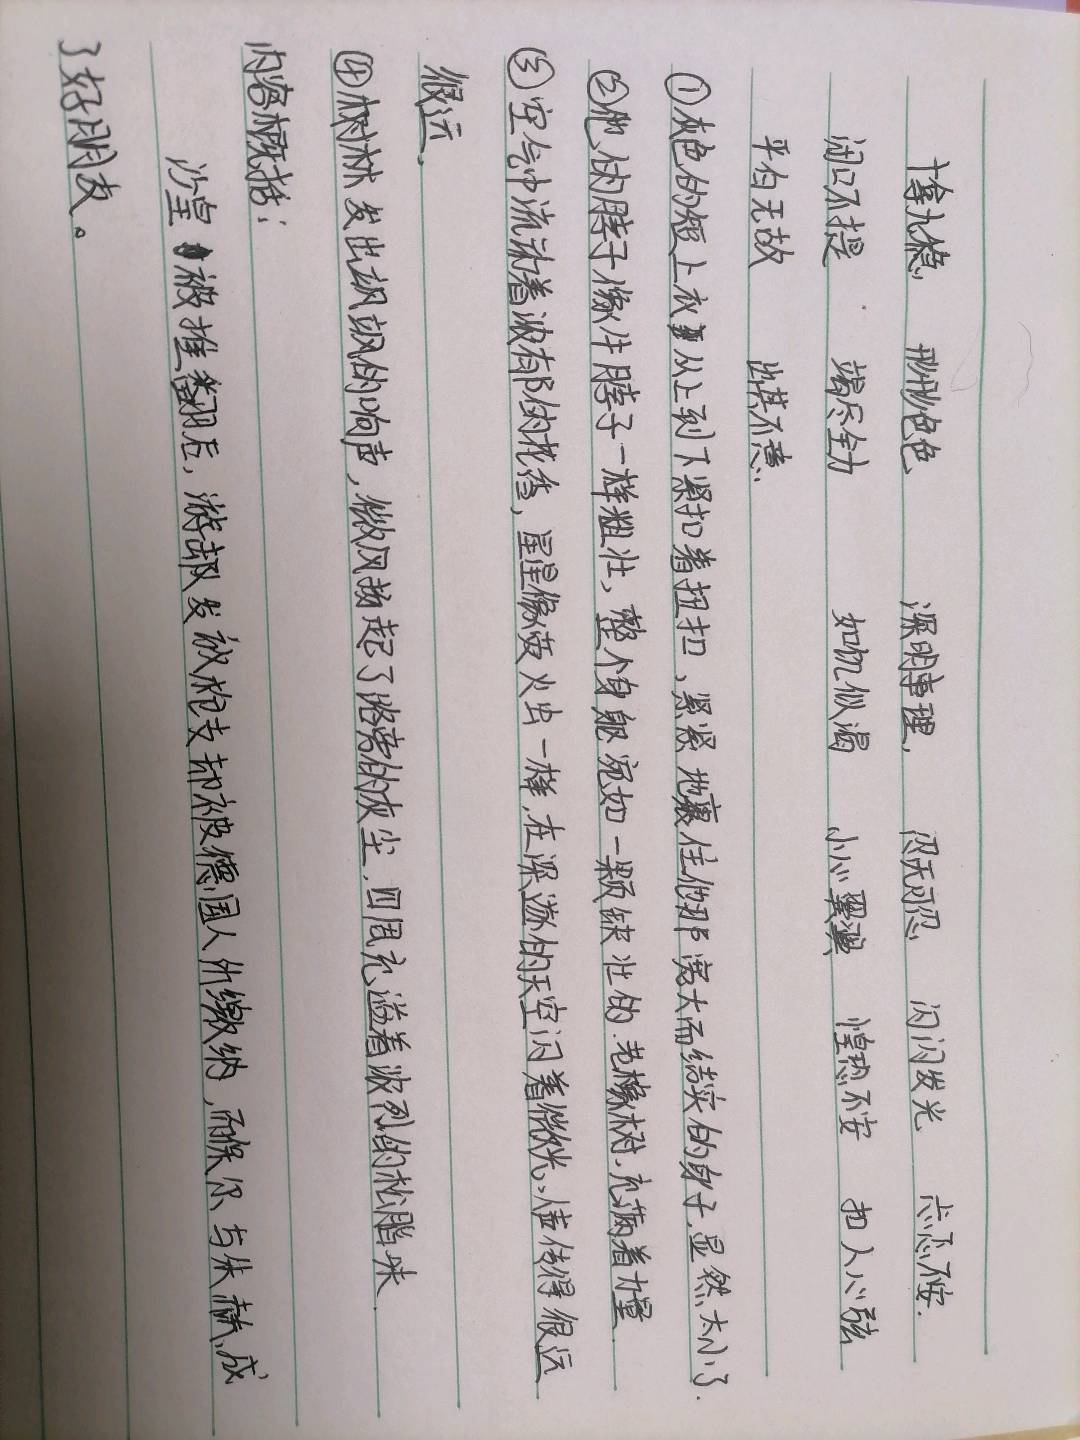 十拿九稳 形形色色 深明事理 忍无可忍 闪闪发光 忐忑不安
闭口不提 竭尽全力 如饥似渴 小心翼翼 惶恐不安 扣人心弦
平白无故 出其不意
①灰色的短上衣从上到下紧扣着扭扣、紧紧地裹住他那宽大而结实的身子,显然太小了.
②他的脖子像牛脖子一样粗壮,整个身躯宛如一颗缺壮的老橡树.充满着力量
③空气中流动着浓郁的花香,星星像萤火虫一样,在深邃的天空闪着微光、声传得很远
很远.
④树林发出飒飒的响声,微风扬起了路旁的灰尘.四周充溢着浓烈的松脂味
内容概括:
沙皇被推翻后,游击队发放枪支却被德国人所缴纳,而保尔与朱赫成
了好朋友。